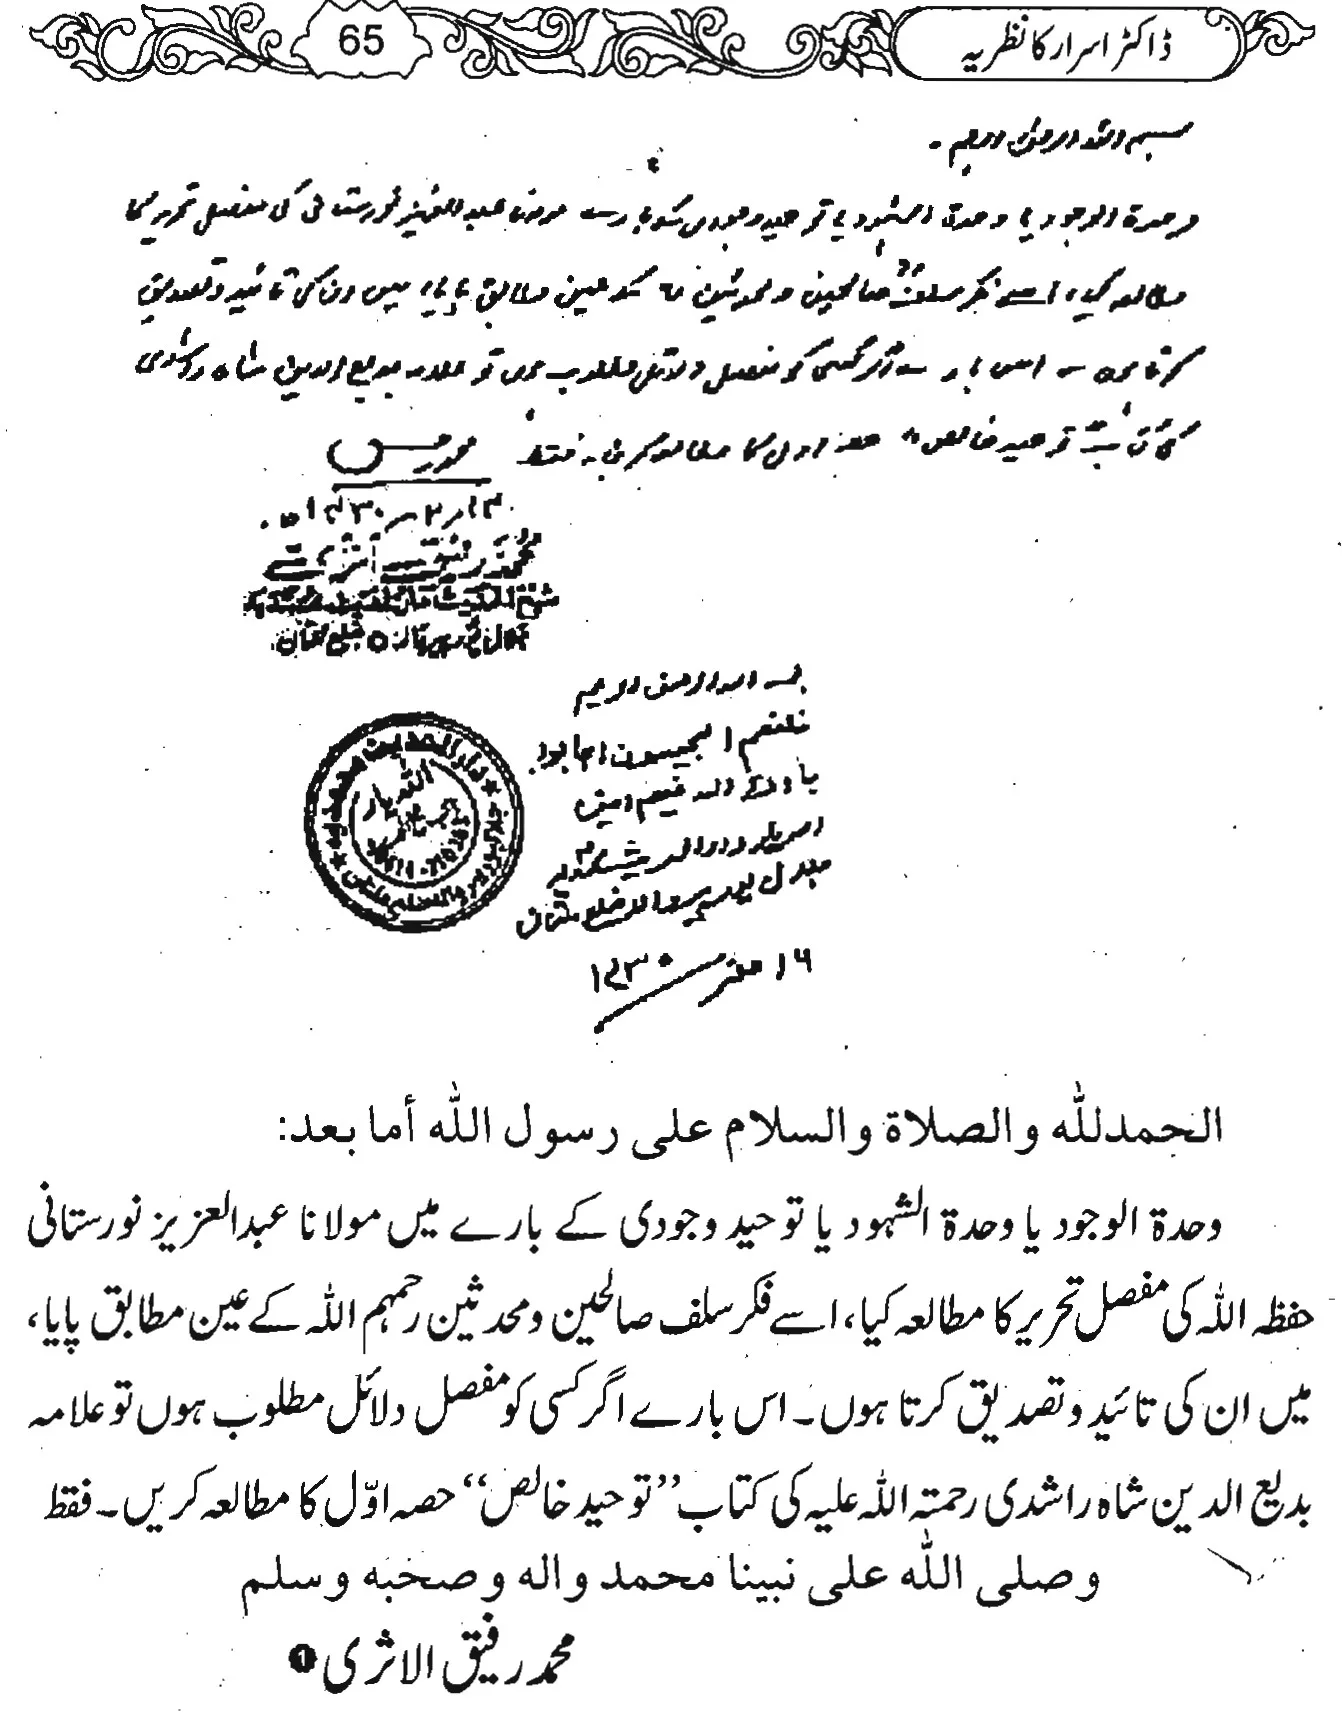 ڈاکٹر اسرار کا نظریہ
65
بسم اللہ الرحمٰن الرحیم ۔
وحدۃ الوجود یا وحدۃ الشہود یا توحید وجودی کے بارے مولانا عبدالعزیز نورستانی کی مفصل تحریر کا
مطالعہ کیا، اسے فکر سلف صالحین و محدثین کے عین مطابق پایا، میں ان کی تائید و تصدیق
کرتا ہوں ۔ اس بارے اگر کسی کو مفصل دلائل مطلوب ہوں تو علامہ بدیع الدین شاہ راشدی
کی کتاب توحید خالص حصہ اول کا مطالعہ کریں ۔ فقط
محمد رفیق
۱۴۳۰ھ
محمد رفیق اثری
بسم اللہ الرحمن الرحیم
۱۶ صفر ۱۴۳۰
الحمدللّٰہ والصلاۃ والسلام علی رسول اللّٰہ أما بعد:
وحدۃ الوجود یا وحدۃ الشہود یا توحید وجودی کے بارے میں مولانا عبدالعزیز نورستانی
حفظہ اللہ کی مفصل تحریر کا مطالعہ کیا، اسے فکر سلف صالحین و محدثین رحمہم اللہ کے عین مطابق پایا،
میں ان کی تائید و تصدیق کرتا ہوں۔ اس بارے اگر کسی کو مفصل دلائل مطلوب ہوں تو علامہ
بدیع الدین شاہ راشدی رحمتہ اللہ علیہ کی کتاب ’’توحید خالص‘‘ حصہ اوّل کا مطالعہ کریں۔ فقط
وصلی اللّٰہ علی نبینا محمد والہ وصحبہ وسلم
محمد رفیق الاثری ❶